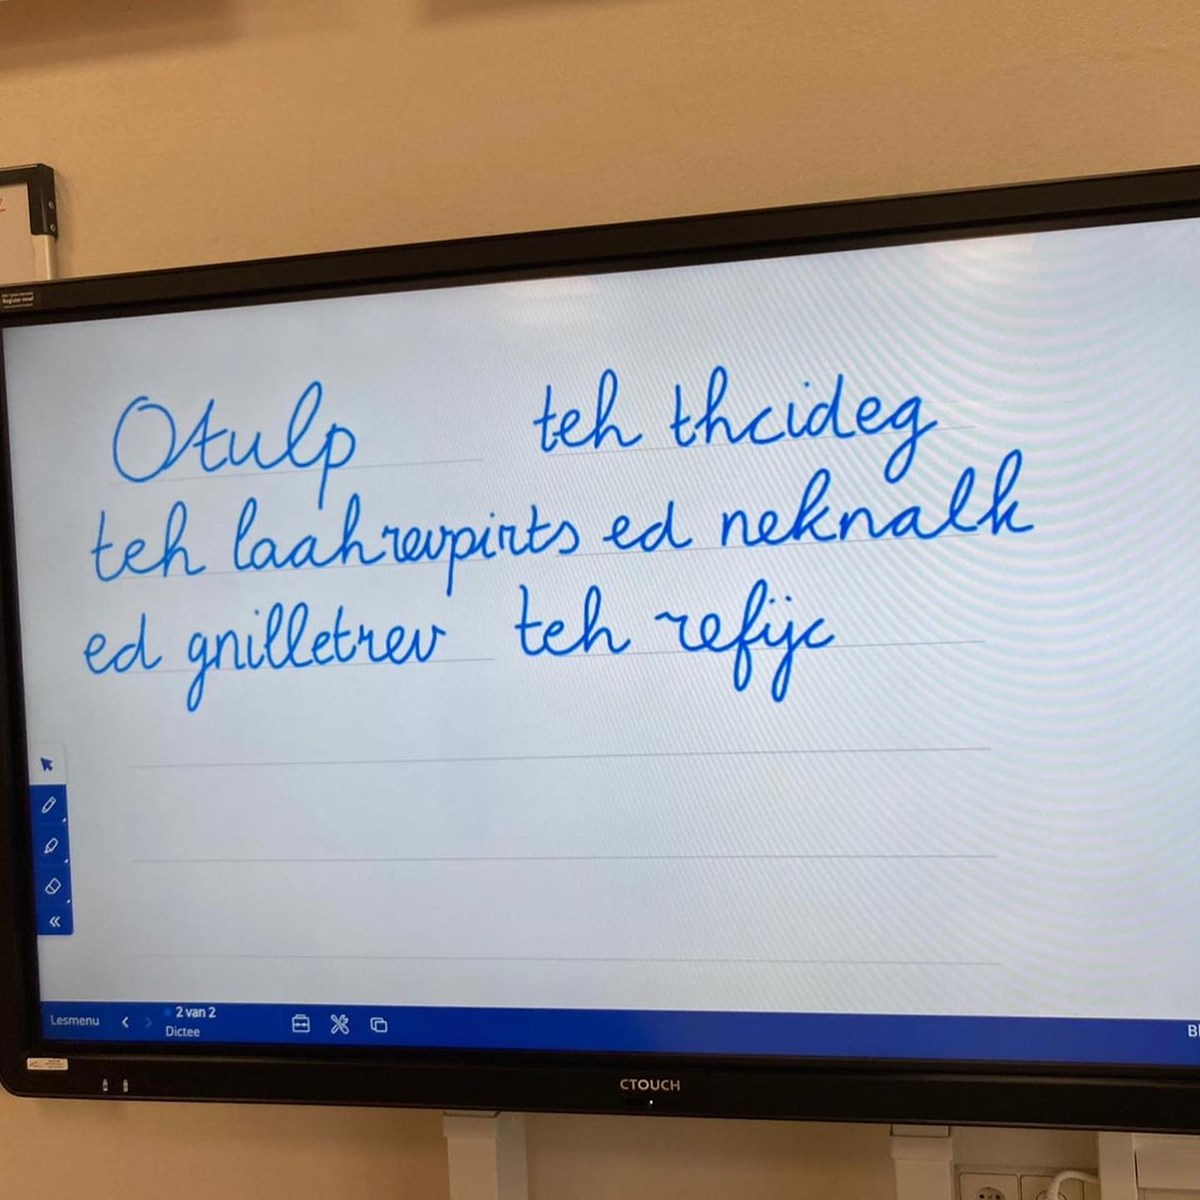 Otulp teh thcideg
teh laahrevpirts ed neknalk
ed gnilletrev teh refijc
Lesmenu
2 van 2
Dictee
CTOUCH